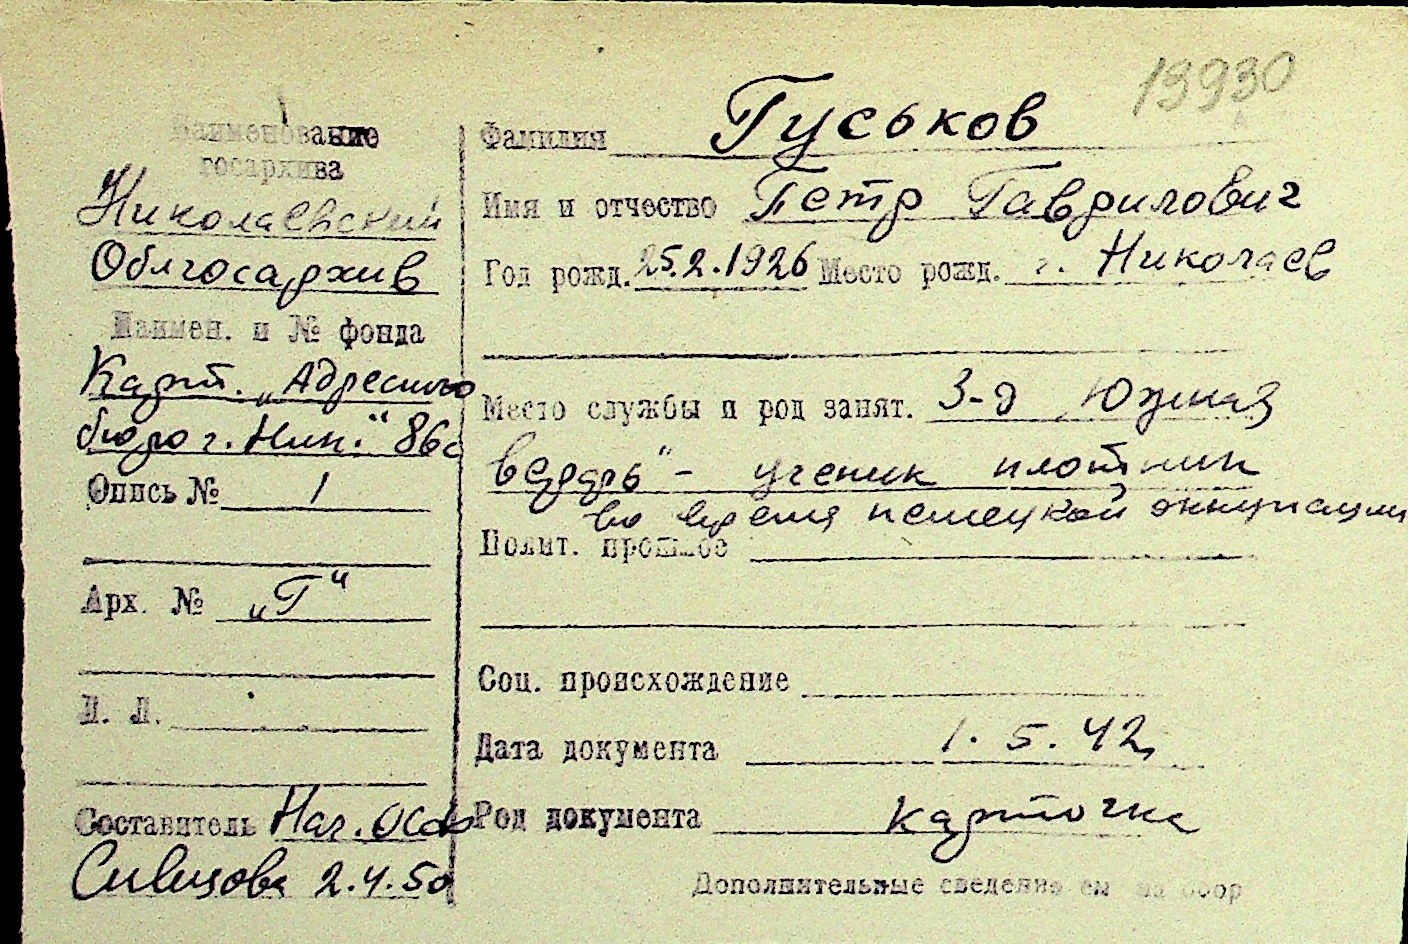 13930
Наименование
госархива
Николаевский
Облгосархив
Наимен. и № фонда
Карт. „Адресного
бюро г. Ник.“ 86с
Опись № 1
Арх. № „Г“
Л. Л.
Составитель Нач. ОСФ
2.4.50
Фамилия Гуськов
Имя и отчество Петр Гаврилович
Год рожд. 25.2.1926 Место рожд. г. Николаев
Место службы и род занят. З-д „Южная
верфь“ - ученик плотник
во время немецкой оккупации
Полит. прошлое
Соц. происхождение
Дата документа 1.5.42
Род документа карточка
Дополнительные сведение см на обор